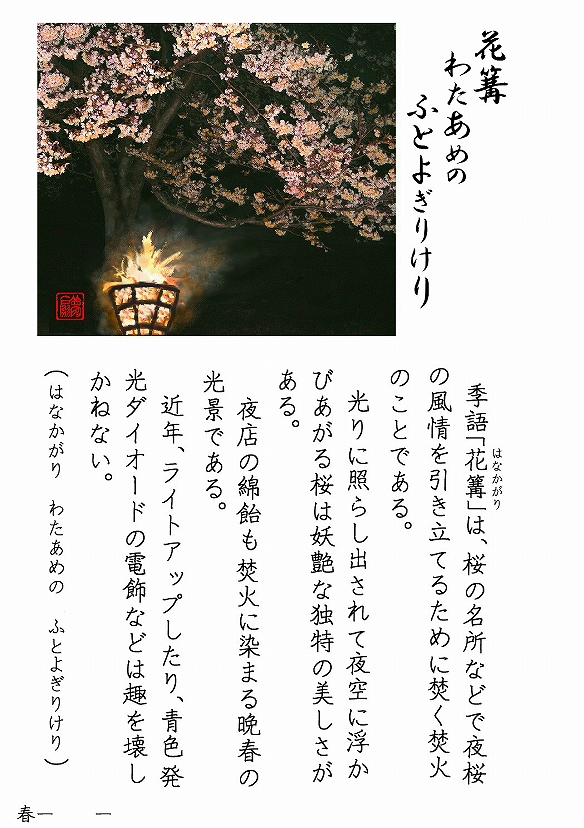 花篝
わたあめの
ふとよぎりけり
季語「花篝」は、桜の名所などで夜桜
はなかがり
の風情を引き立てるために焚く焚火
のことである。
光りに照らし出されて夜空に浮か
びあがる桜は妖艶な独特の美しさが
ある。
夜店の綿飴も焚火に染まる晩春の
光景である。
近年、ライトアップしたり、青色発
光ダイオードの電飾などは趣を壊し
かねない。
(はなかがり わたあめの ふとよぎりけり)
春一 一